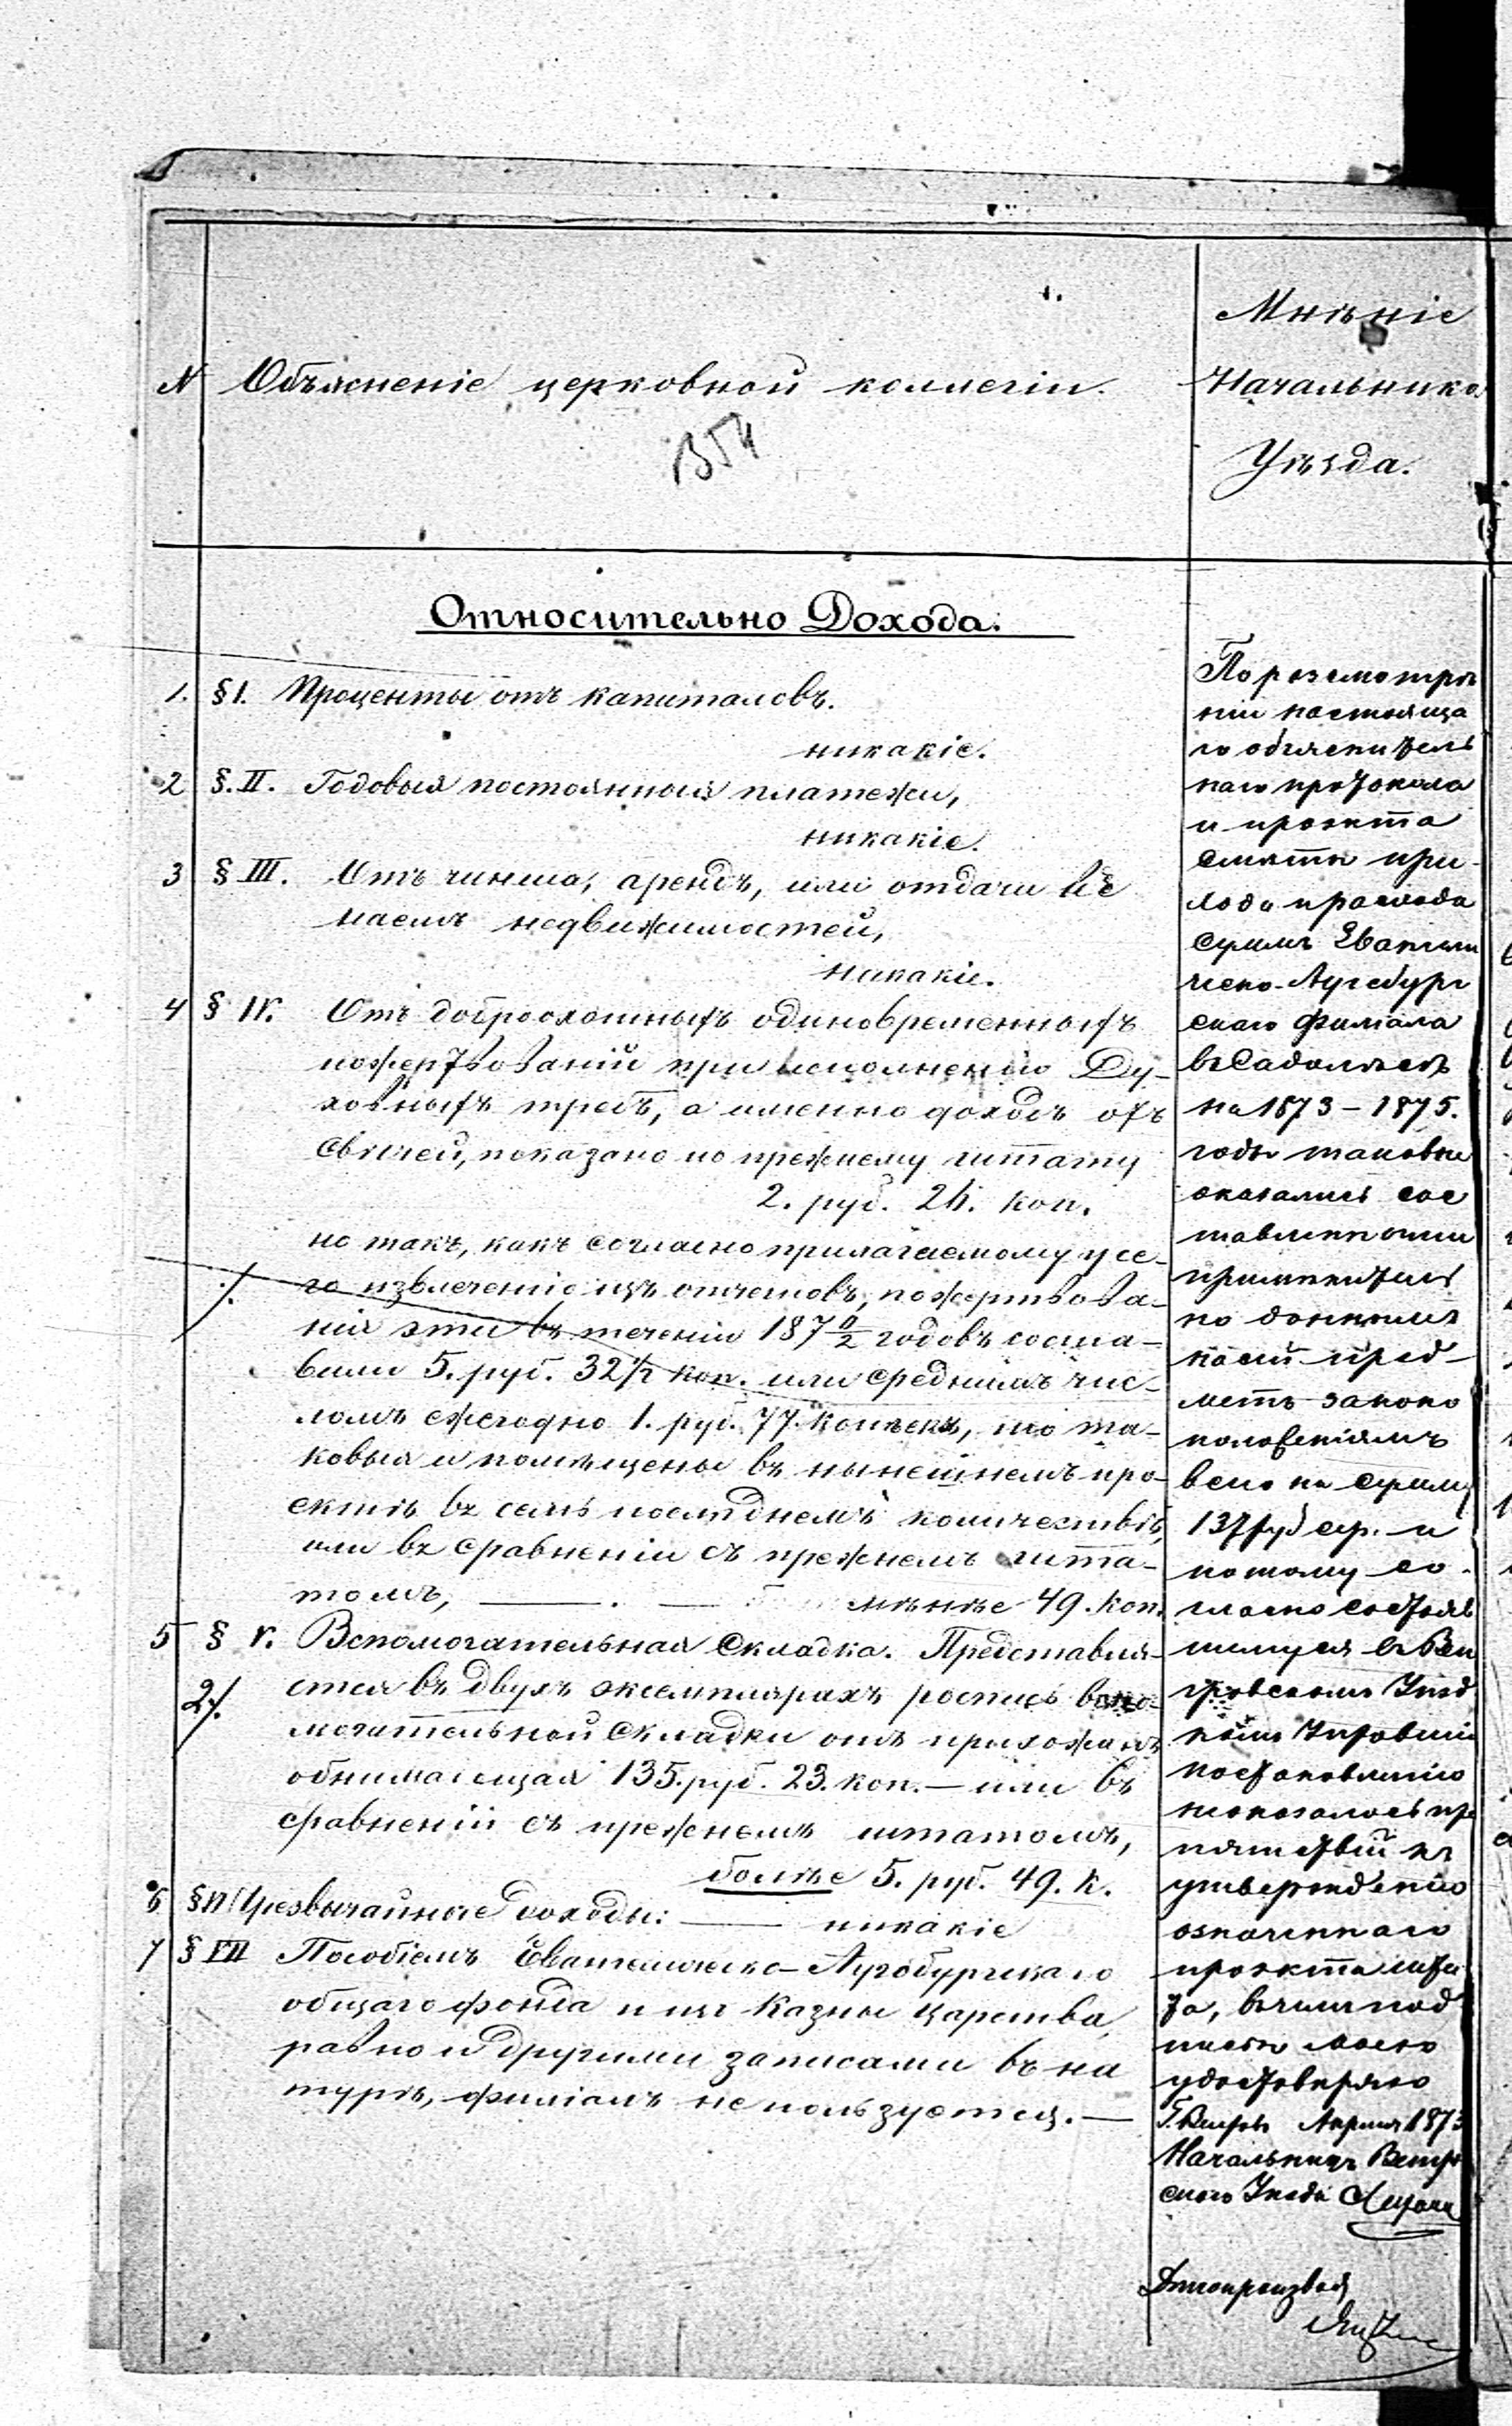 N Объясненіе церковной коллегіи.
Мнѣніе
Начальника
Уѣзда.
Относительно Дохода.
1. § I. Проценты отъ капиталовъ.
никакіе.
2 §. II. Годовыя постоянныя платежи,
никакіе.
3 § III. Отъ чинша, арендъ, или отдачи въ
наемъ недвижимостей,
никакіе.
4 § IV. Отъ доброохотныхъ одиновременныхъ
пожертвованій при исполненію Ду-
ховныхъ требъ, а именно доходъ отъ
свѣчей, показано по прежнему штату
2. руб. 26. коп.
но такъ, какъ согласно прилагаемому у се-
./. го извлеченіе изъ отчетовъ, пожертвова-
нія эти въ теченіи 187 0/2 годовъ соста-
вили 5. руб. 32 1/2 коп. или среднимъ чис-
ломъ ежегодно 1. руб. 77. копѣекъ, то та-
ковыя и помѣщены въ нынешнемъ про-
ектѣ въ семъ послѣднемъ количествѣ,
или въ сравненіи съ прежнемъ шта-
томъ, — . — менѣе 49. коп.
5 § V. Вспомогательная Складка. Представля-
2./. ется въ двухъ экземплярахъ роспись вспо-
могательной складки отъ прихожанъ
обнимающая 135. руб. 23. коп. — или въ
сравненіи съ прежнемъ штатомъ,
болѣе 5. руб. 49. к.
6 § VI Чрезвычайные доходы: — никакіе
7 § VII Пособіемъ Евангелическо-Аугсбургскаго
общаго фонда и изъ Казны Царства,
равно и другими записами въ на
турѣ, филіалъ не пользуется. —
По разсмотрѣ
ніи настояща
го объяснитель
наго протокола
и проэкта
смѣты при-
хода и расхода
суммъ Евангели
ческо-Аугсбург
скаго Филіала
въ Садолѣсѣ
на 1873 – 1875.
годы таковые
оказались сос
тавленными
примѣнитель
но даннымъ
на сей пред-
метъ законо
положеніямъ
всего на сумму
137 руб сер. и
потому со-
гласно состояв
шемуся въ Вен
гровскомъ Уѣзд
номъ Управленіи
постановленію
не оказалось пре
пятствій къ
утвержденію
означеннаго
проэкта шта
та, въ чемъ под
писью моею
удостовѣряю
Г. Венгровъ Апрѣля 1873
Начальникъ Венгров
скаго Уѣзда
Дѣлопроизвод